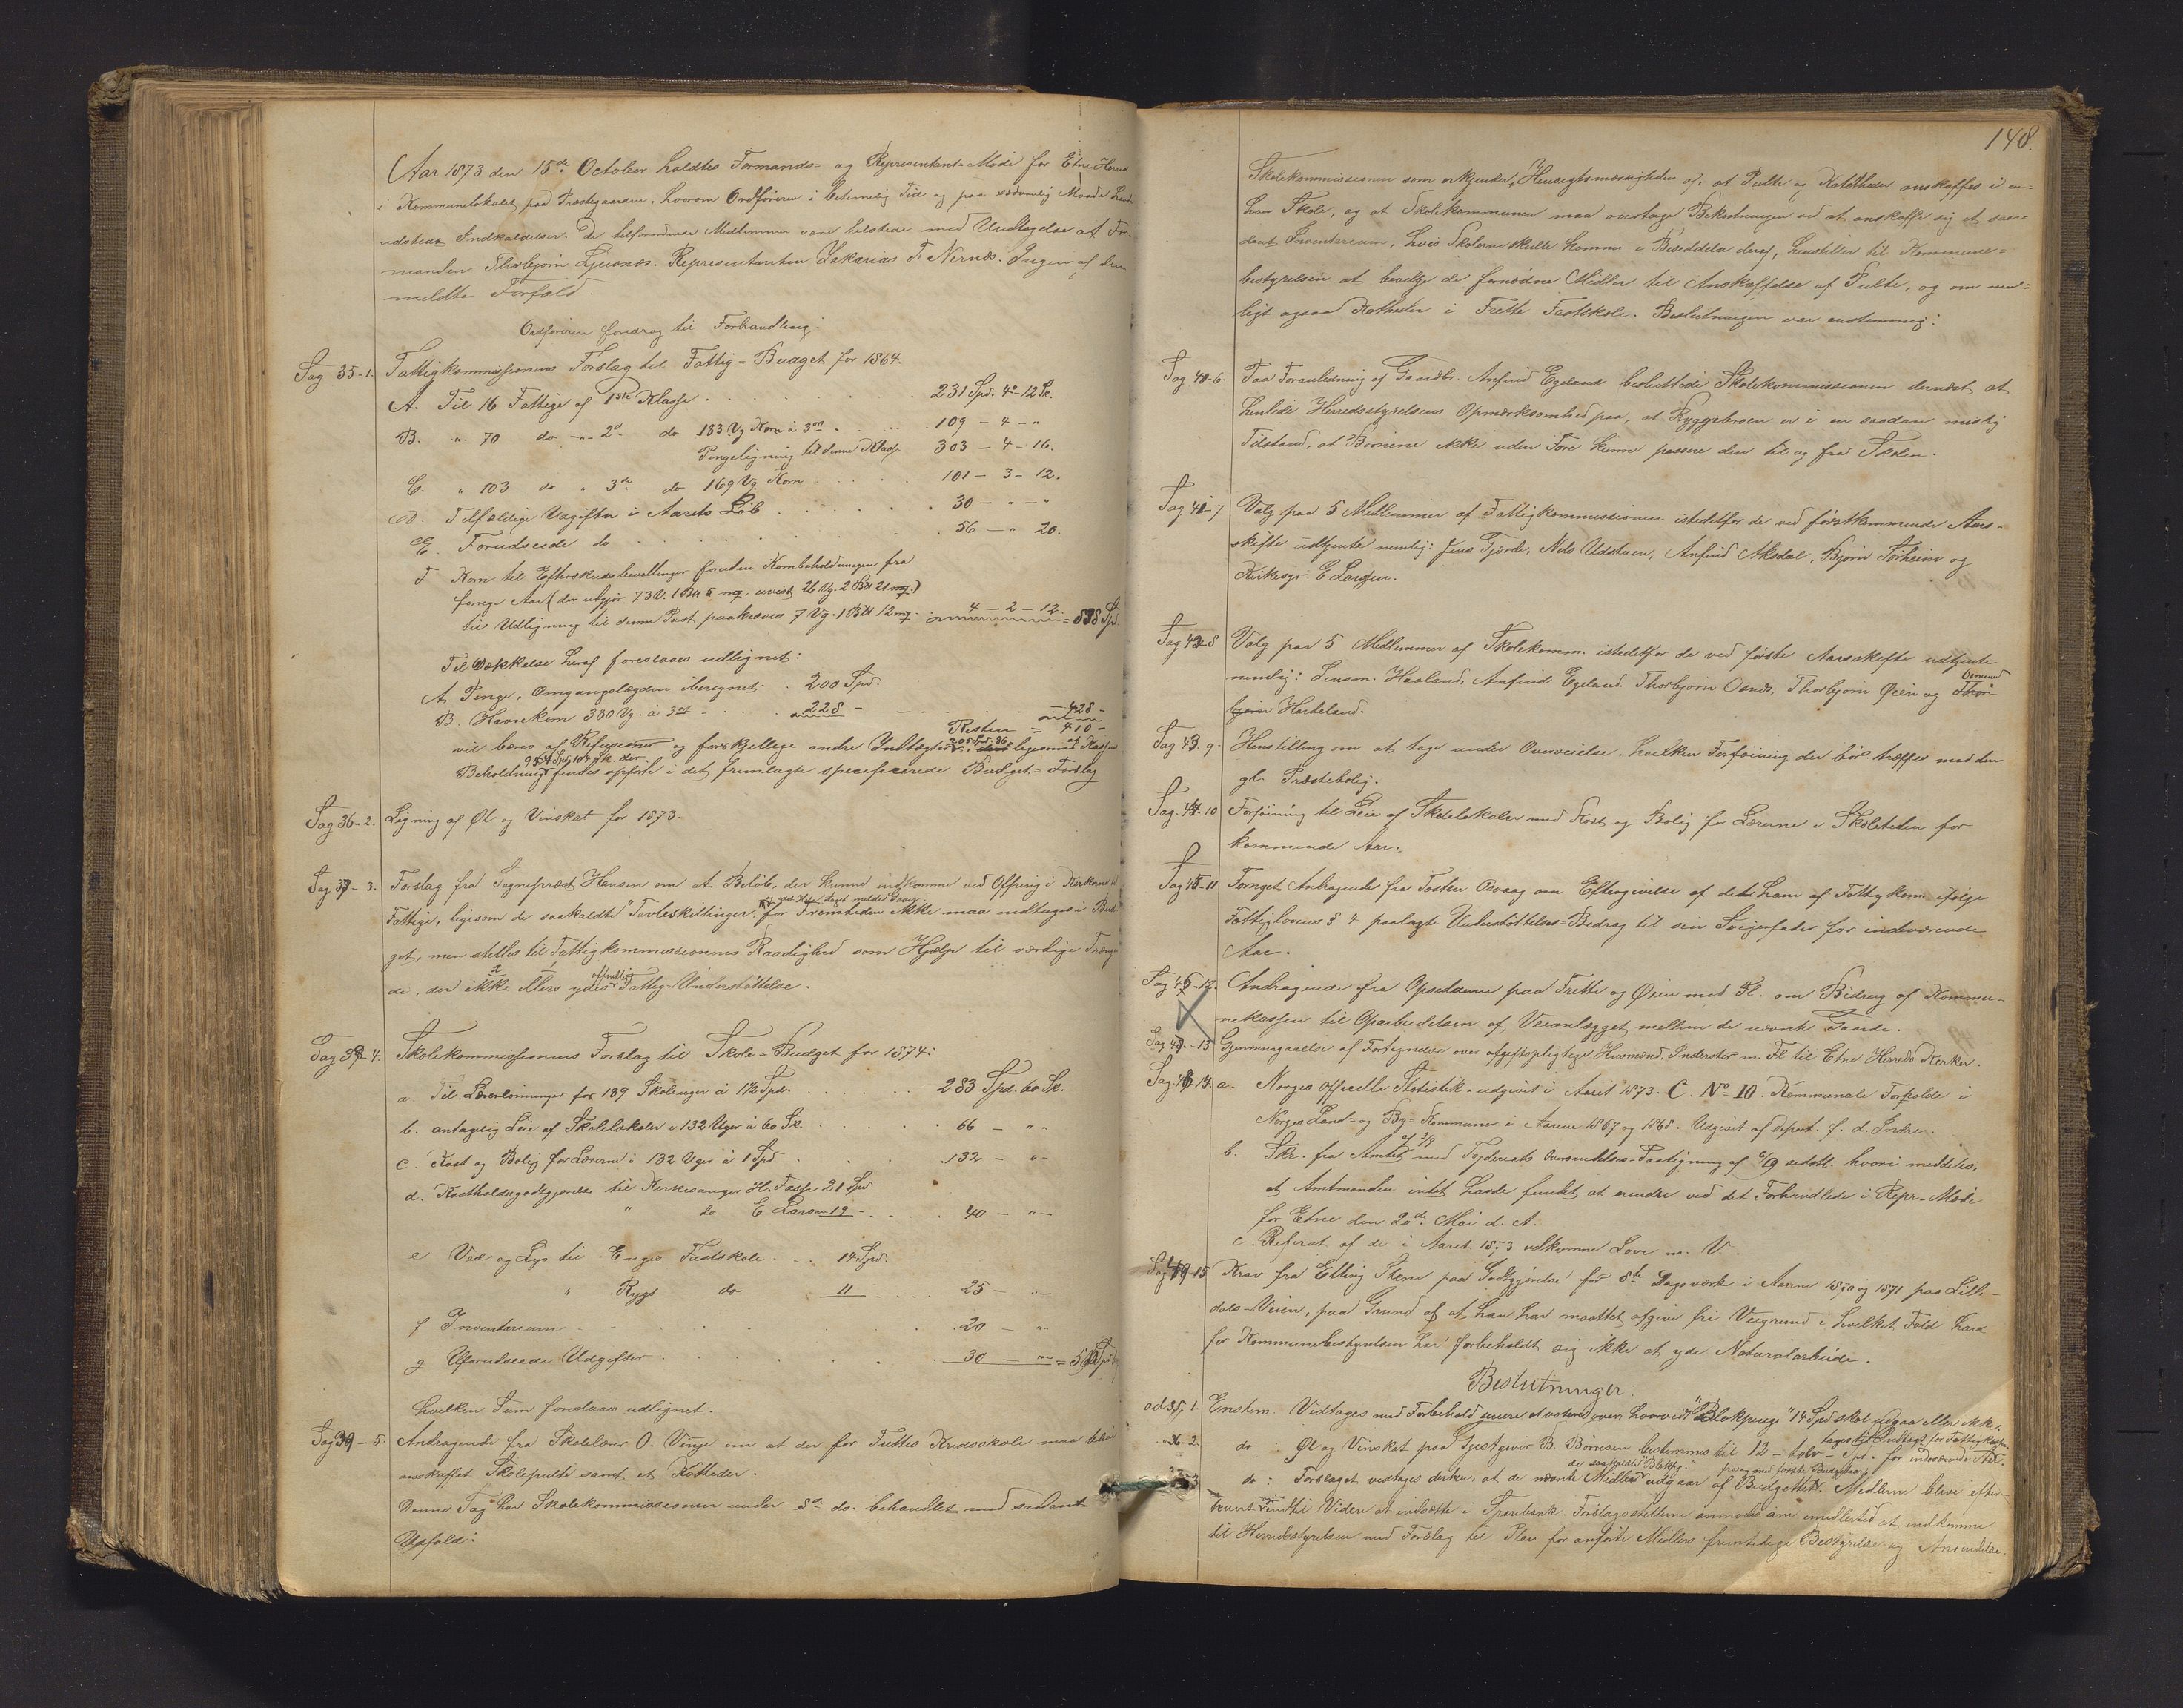 Aar 1873 den 15de October holdtes Formands- og Representant-Møde for Etne Herred
i Kommunelokalet paa Prestegaarden, hvorom Ordføreren i betimelig Tid og paa sædvanlig Maade havde
udstedt Indkaldelser. De tilforordnede Medlemmer vare tilstede med Undtagelse af For-
manden Thorbjørn Ljusnæs. Representanten Zakarias T. Nernæs. Ingen af dem
meldte Forfald.
Ordføreren foredrog til Forhandling:
Sag 35-1. Fattigkommissionens Forslag til Fattig-Budget for 1864.
A. Til 16 Fattige af 1ste Klasse . . . 231 Spd. 4 - 12 Sk.
B. " 70 do " 2d do 183 Vg Korn à 3 ort . . . 109 - 4 - "
Pengeligning til denne Klasse 303 - 4 - 16.
C. " 103 do " 3de do 169 Vg Korn . . . 101 - 3 - 12.
D. Tilfældige Udgifter i Aarets Løb . . . 30 - " - "
E. Forudseede do . . . 56 - " 20.
F Korn til Efterskudsbevillinger foruden Kornbeholdningen fra
forrige Aar (der utgjør 73 V. 1 Bpd 5 mrk. 26 Vg. 2 Bpd 21 mrk.)
til Udligning til denne Post paakræves 7 Vg. 1 Bpd 12 mrk. 4 - 2 - 12. = 838 Spd
Til Dækkelse heraf foreslaaes udlignet:
A Penge, Omgangslægden iberegnet . 200 Spd.
B. Havrekorn 380 Vg. à 3 ort . . . 228 - . . . - 428 -
Resten = 410 -
vil bæres af Refusioner og forskjellige andre Indtægter, ligesom af Kassens
Beholdning findes opført i det fremlagte specificerede Budget-Forslag
Sag 36-2. Ligning af Øl og Vinskat for 1873.
Sag 37-3. Forslag fra Sognepræst Hansen om at Beløb, der kunne indkomme ved Offring i Kirkerne til
Fattige, ligesom de saakaldte "Tavleskillinger" for Fremtiden ikke maa indtages i Bud-
get, men stilles til Fattigkommissionens Raadighed som Hjælp til værdige Træng-
de, der ikke ellers ydes offentlig Fattig-Understøttelse.
Sag 38-4. Skolekommissionens Forslag til Skole-Budget for 1874:
a. Til Lærerlønninger for 189 Skoleuger à 1½ Spd. . . . 283 Spd. 60 Sk.
b. antagelig Leie af Skolelokaler i 132 Uger à 60 Sk. . . . 66 - " -
c. Kost og Bolig for Lærerne i 132 Uger à 1 Spd . . . 132 - " -
d. Kostholdsgodtgjørelse til Kirkesanger H. Fasse 21 Spd
" do E Larsen 19 - . . . 40 - " -
e Ved og Lys til Enges Fastskole . . . 14 Spd.
" Rygs do 11 . . . 25 - " -
f Inventarium . . . 20 - " -
g Uforudseede Udgifter . . . 30 - " -
hvilken Sum foreslaaes udlignet.
Sag 39-5. Andragende fra Skolelærer O. Vinge om at der for Frettes Kredsskole maa blive
anskaffet Skolepulte samt et Katheder.
Denne Sag har Skolekommissionen under 8de ds. behandlet med saadant
Udfald:
148.
Skolekommissionen som erkjender Hensigtsmæssigheden af, at Pulte og Kathether anskaffes i en-
hver Skole, og at Skolekommunen maa overtage Bekostningen ved at anskaffe sig et saa-
dant Inventarium, hvis Skolerne skulle komme i Besiddelse deraf, henstiller til Kommune-
bestyrelsen at bevilge de fornødne Midler til Anskaffelse af Pulte, og om mu-
ligt ogsaa Katheder i Frette Fastskole. Beslutningen var enstemmig:
Sag 40-6. Paa Foranledning af Gaardbr. Anfind Egeland besluttede Skolekommissionen dernæst at
henlede Herredsstyrelsens Opmærksomhed paa, at Ryggebroen er i en saadan mislig
Tilstand, at Børnene ikke uden Fare kunne passere den til og fra Skolen.
Sag 41-7 Valg paa 5 Medlemmer af Fattigkommissionen istedetfor de ved førstkommende Aars-
skifte udtjente nemlig: Jens Gjerde, Nels Udstuen, Anfind Aksdal, Bjørn Tørheim og
Kirkesgr. E Larssen.
Sag 42-8 Valg paa 5 Medlemmer af Skolekomm. istedetfor de ved første Aarsskifte udtjente
nemlig: Lensm. Haaland, Anfind Egeland, Thorbjørn Osnes, Thorbjørn Øien og Osmund
Hardeland.
Sag 43. 9. Henstilling om at tage under Overveielse, hvilken Forføining der bør træffes med den
gl. Præstebolig.
Sag. 44. 10 Forføining til Leie af Skolelokaler med Kost og Bolig for Lærerne i Skoletiden for
kommende Aar.
Sag 45-11 Fornyet Andragende fra Tosten Osvaag om Eftergivelse af det ham af Fattigkomm. ifølge
Fattiglovens § 4 paalagte Understøttelses-Bidrag til sin Svigerfader for indeværende
Aar.
Sag 46-12. Andragende fra Opsidderne paa Frette og Øien med Fl. om Bidrag af Kommu-
nekassen til Oparbeidelsen af Veianlægget mellem de nævnte Gaarde.
Sag 47-13 Gjennemgaaelse af Fortegnelse over afgiftspligtige Husmænd, Inderster m. Fl til Etne Herreds Kirker.
Sag 48 14. a. Norges officielle Statistik. udgivet i Aaret 1873. C. No 10. Kommunale Forholde i
Norges Land- og By-Kommuner i Aarene 1867 og 1868. Udgivet af Depart. f. d. Indre.
b. Skr. fra Amtet af 3/9 med Fogderiets Oversendelses-Paategning af 6/9 sidstl. hvori meddeles,
at Amtmanden intet havde fundet at erindre ved det Forhandlede i Repr-Møde
for Etne den 20de Mai d. A.
c. Referat af de i Aaret 1873 udkomne Love m. V.
Sag 49 15 Krav fra Elling Stene paa Godtgjørelse for 8te Dagsværk i Aarene 1870 og 1871 paa Litle-
dals-Veien, paa Grund af at han har maattet afgive fri Veigrund i hvilket Fald han
for Kommunebestyrelsen har forbeholdt sig ikke at yde Naturalarbeide.
Beslutninger:
ad 35, 1. Enstem. Vedtages med Forbehold senere at votere over, hvorvidt "Blokpenge" 14 Spd skal udgaa eller ikke
tages til Indtægt for Fattigkassen.
" 36-2. do : Øl og Vinskat paa Gjestgiver B. Børresen bestemmes til 12 - tolv - Spd. for indeværende Aar.
do : Forslaget vedtages derhen, at de nævnte Midler de saakaldte Blokpg. udgaar af Budgettet fra og med første Budgetaar. Midlerne blive efter-
hvert indtil Videre at indsætte i Sparebank. Forslagsstilleren anmodes om imidlertid at indkomme
til Herredsstyrelsen med Forslag til Plan for anførte Midlers fremtidige Bestyrelse og Anvendelse.